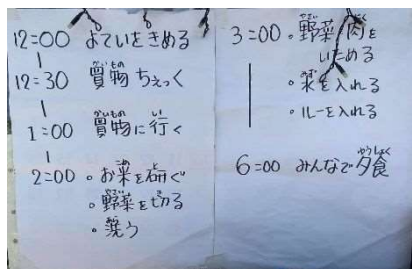 12:00 よていをきめる
12:30 買物ちぇっく
1:00 買物に行く
2:00 ・お米を研ぐ
・野菜を切る
・洗う
3:00 ・野菜、肉を
いためる
・水を入れる
・ルーを入れる
6:00 みんなで夕食